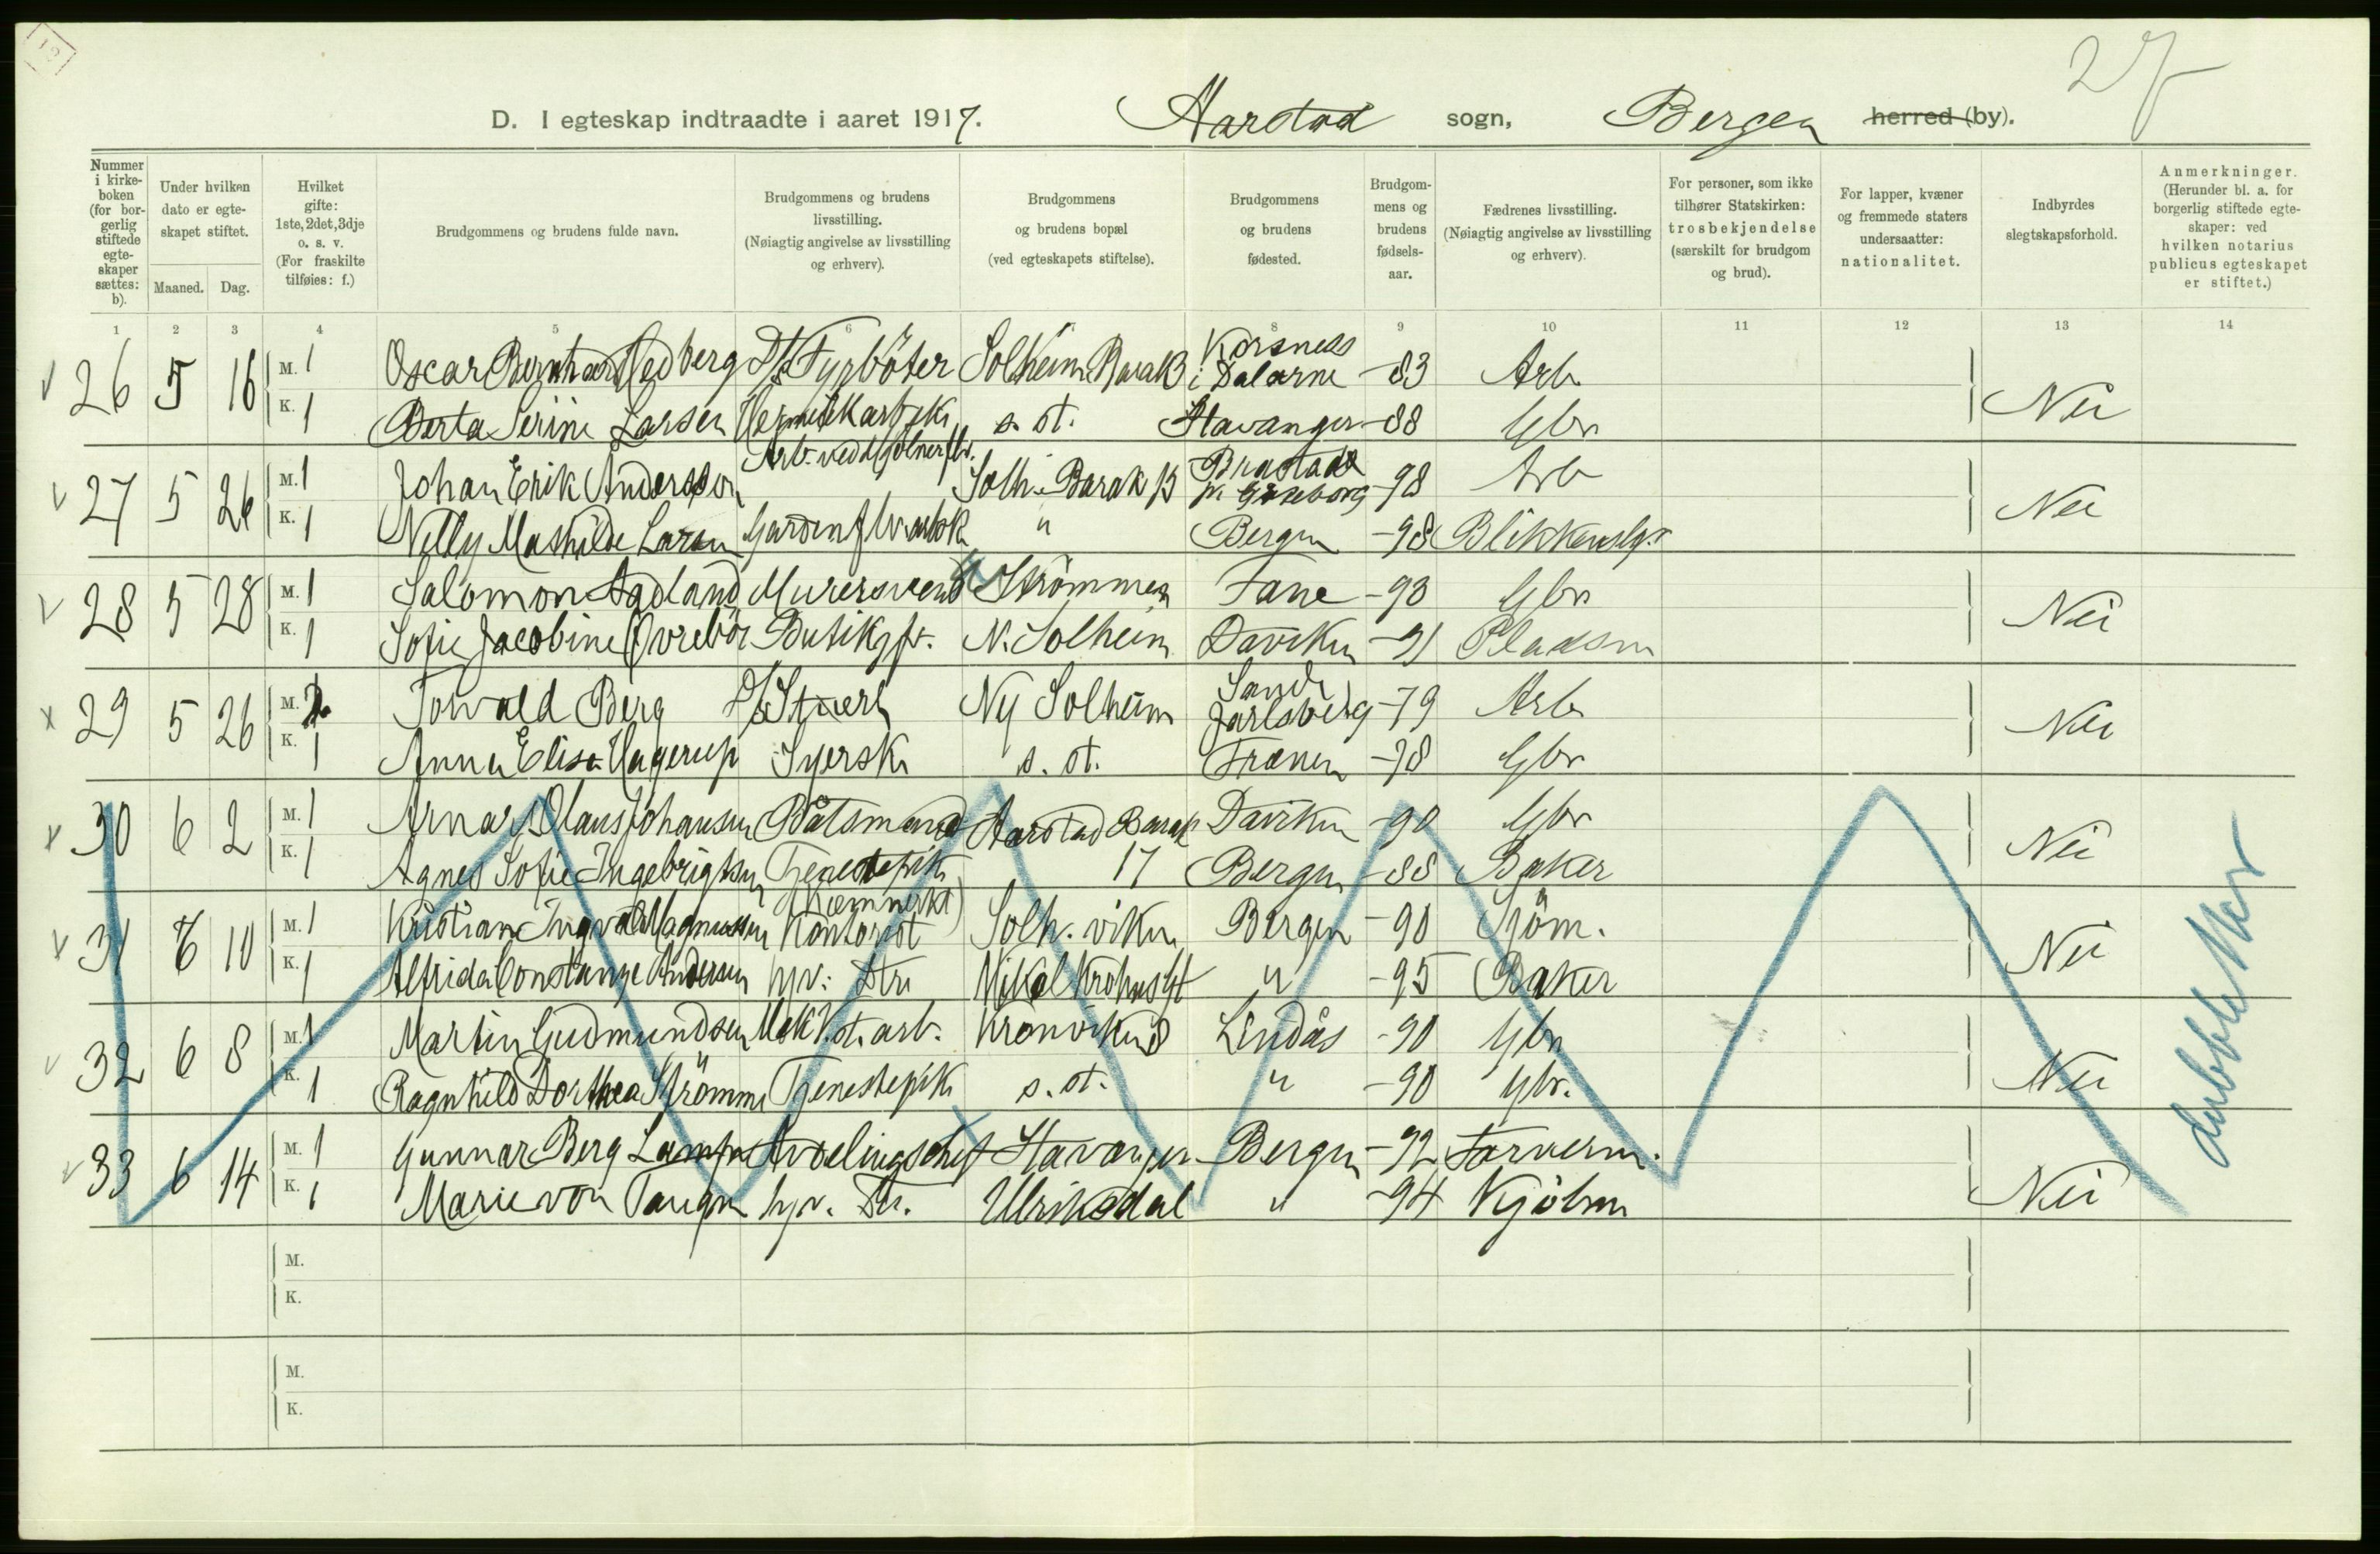 27
D. I egteskap indtraadte i aaret 1917. Aarstad sogn, Bergen herred (by).
Nummer i kirkeboken (for borgerlig stiftede egteskaper sættes: b).
Under hvilken dato er egteskapet stiftet.
Maaned. Dag.
Hvilket gifte: 1ste, 2det, 3dje o. s. v. (For fraskilte tilføies: f.)
Brudgommens og brudens fulde navn.
Brudgommens og brudens livsstilling. (Nøiagtig angivelse av livsstilling og erhverv).
Brudgommens og brudens bopæl (ved egteskapets stiftelse).
Brudgommens og brudens fødested.
Brudgommens og brudens fødselsaar.
Fædrenes livsstilling. (Nøiagtig angivelse av livsstilling og erhverv).
For personer, som ikke tilhører Statskirken: trosbekjendelse (særskilt for brudgom og brud).
For lapper, kvæner og fremmede staters undersaatter: nationalitet.
Indbyrdes slegtskapsforhold.
Anmerkninger. (Herunder bl. a. for borgerlig stiftede egteskaper: ved hvilken notarius publicus egteskapet er stiftet.)
1 2 3 4 5 6 7 8 9 10 11 12 13 14
26 5 16 M. 1 Oscar Bernhard Hedberg D/S Fyrböter Solheim Barak 13 Korsness i Dalarne -83 Arb Nei
K. 1 Berta Serine Larsen Hermetikarb.sk s. st. Stavanger -88 Gbr
27 5 26 M. 1 Johan Erik Andersson Arb. ved Solh. Barak 13 Brastad Göteborg -98 Arb Nei
K. 1 Nelly Mathilde Larsen " Bergen -98 Blikkenslgr
28 5 28 M. 1 Salomon Aadland Murersvend Strömmen Fane -93 Gbr Nei
K. 1 Sofie Jacobine Övrebö Butikjfr. N. Solheim Daviken -91 Pladsm
29 5 26 M. 2 Torvald Berg D/S Stuert Ny Solheim Sande Jarlsberg -79 Arb Nei
K. 1 Anna Elise Hagerup Syersk s. st. Frænen -78 Gbr
30 6 2 M. 1 Arnar Olaus Johansen Båtsmand Aarstad Barak 17 Daviken -90 Gbr Nei
K. 1 Agnes Sofie Ingebrigtsen Tjenestepik Bergen -88 Baker
31 6 10 M. 1 Kristian Ingvald Magnussen Kontorist Solh. viken Bergen -90 Sjöm. Nei
K. 1 Alfrida Constanze Andersen hjv. Dtr Mikal Krohns gt " -95 Baker
32 6 8 M. 1 Martin Gudmundsen Mek. V.st. arb. Kronviken 8 Lindås -90 Gbr Nei
K. 1 Ragnhild Dorthea Strömme Tjenestepik s. st. " -90 Gbr.
33 6 14 M. 1 Gunnar Berg Lampe Avdelingschef Stavanger Bergen -92 Farverm. Nei
K. 1 Marie von Tangen hjv. Dtr. Ulriksdal " -94 Kjöbm
dubbletter
M.
K.
M.
K.